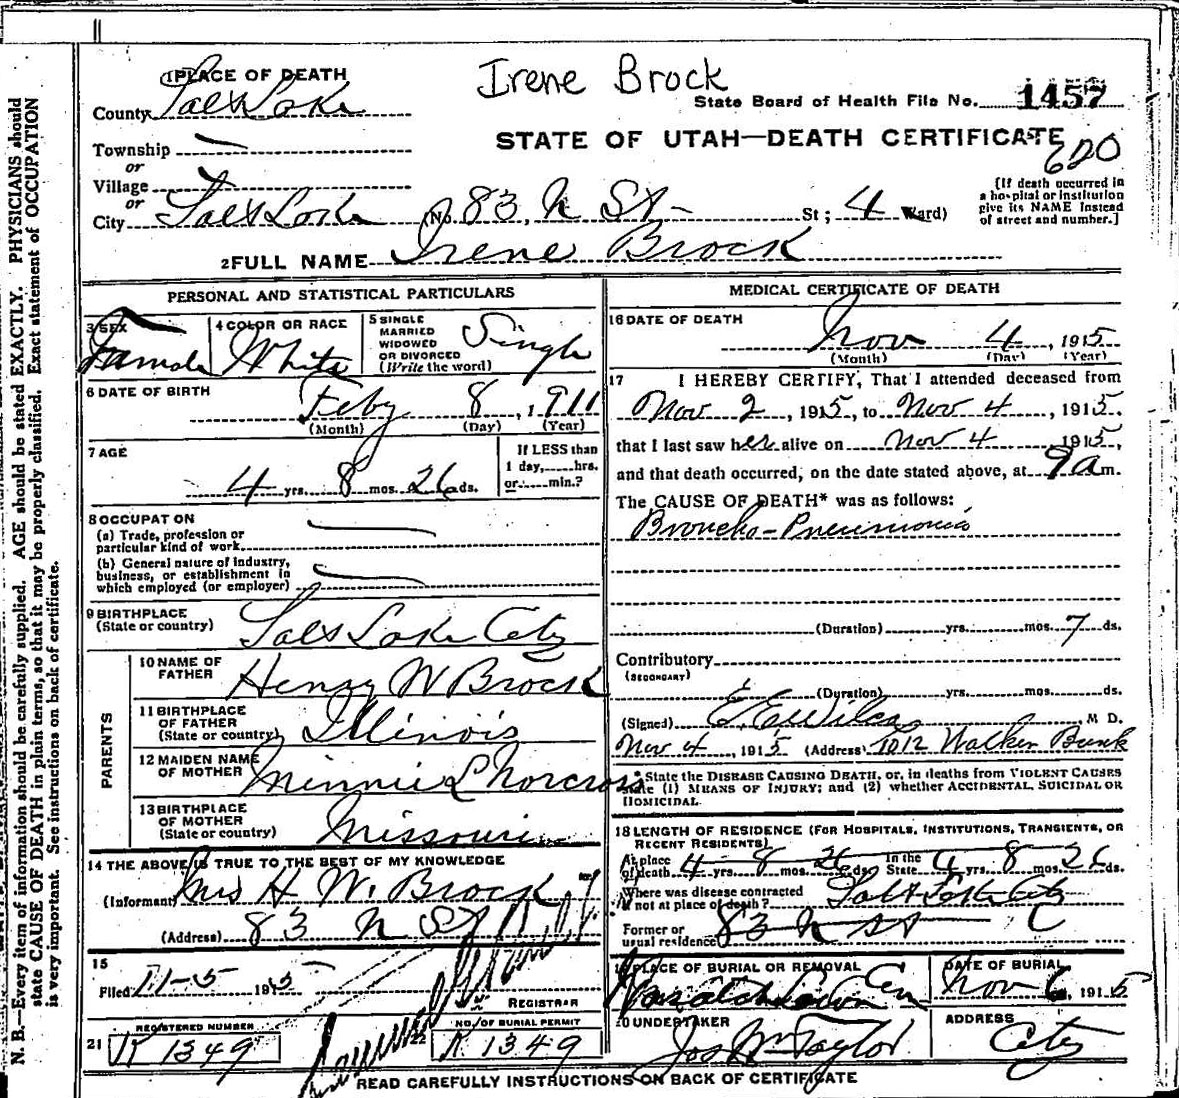 Irene Brock
1 PLACE OF DEATH
County Salt Lake
State Board of Health File No. 1457
Township
STATE OF UTAH—DEATH CERTIFICATE
620
or
Village
or
City Salt Lake (No. 83, N St - St; 4 Ward)
[If death occurred in
a hospital or institution
give its NAME instead
of street and number.]
2 FULL NAME Irene Brock
PERSONAL AND STATISTICAL PARTICULARS
3 SEX
Female
4 COLOR OR RACE
White
5 SINGLE
MARRIED
WIDOWED
OR DIVORCED
(Write the word)
Single
6 DATE OF BIRTH
Feby 8, 1911
(Month) (Day) (Year)
7 AGE
4 yrs. 8 mos. 26 ds.
If LESS than
1 day,......hrs.
or......min.?
8 OCCUPATION
(a) Trade, profession or
particular kind of work
(b) General nature of industry,
business, or establishment in
which employed (or employer)
9 BIRTHPLACE
(State or country)
Salt Lake City
PARENTS
10 NAME OF
FATHER
Henry W Brock
11 BIRTHPLACE
OF FATHER
(State or country)
Illinois
12 MAIDEN NAME
OF MOTHER
Minnie L Norcross
13 BIRTHPLACE
OF MOTHER
(State or country)
Missouri
14 THE ABOVE IS TRUE TO THE BEST OF MY KNOWLEDGE
(Informant) Mrs H. W. Brock
(Address) 83 N St
15
Filed 11-5 1915
REGISTRAR
REGISTERED NUMBER
21 K 1349
NO. OF BURIAL PERMIT
22 K 1349
MEDICAL CERTIFICATE OF DEATH
16 DATE OF DEATH
Nov 4, 1915
(Month) (Day) (Year)
17 I HEREBY CERTIFY, That I attended deceased from
Nov 2, 1915, to Nov 4, 1915.
that I last saw her alive on Nov 4 1915,
and that death occurred, on the date stated above, at 9 a m.
The CAUSE OF DEATH* was as follows:
Broncho-Pneumonia
(Duration) yrs. mos. 7 ds.
Contributory
(SECONDARY)
(Duration) yrs. mos. ds.
(Signed) E E Wilcox, M D.
Nov 4, 1915 (Address) 1012 Walker Bank
* State the DISEASE CAUSING DEATH, or, in deaths from VIOLENT CAUSES
state (1) MEANS OF INJURY; and (2) whether ACCIDENTAL, SUICIDAL OR
HOMICIDAL.
18 LENGTH OF RESIDENCE (FOR HOSPITALS, INSTITUTIONS, TRANSIENTS, OR
RECENT RESIDENTS)
At place
of death 4 yrs. 8 mos. 26 ds. In the
State 4 yrs. 8 mos. 26 ds.
Where was disease contracted
if not at place of death? Salt Lake City
Former or
usual residence 83 N St C
19 PLACE OF BURIAL OR REMOVAL
Wasatch Lawn Cem
DATE OF BURIAL
Nov 6, 1915
20 UNDERTAKER
Jos Wm Taylor
ADDRESS
City
READ CAREFULLY INSTRUCTIONS ON BACK OF CERTIFICATE
N. B.—Every item of information should be carefully supplied. AGE should be stated EXACTLY. PHYSICIANS should
state CAUSE OF DEATH in plain terms, so that it may be properly classified. Exact statement of OCCUPATION
is very important. See instructions on back of certificate.